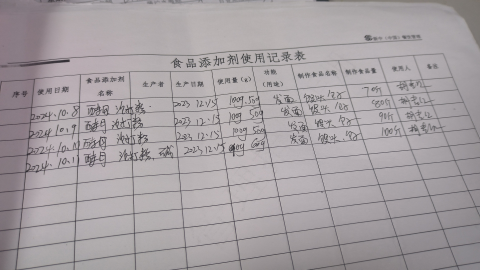 食品添加剂使用记录表
序号 使用日期 食品添加剂名称 生产者 生产日期 使用量(g) 功能(用途) 制作食品名称 制作食品量 使用人 备注
2024.10.8 酵母 泡打粉 2023.12.15 100g 50g 发面 馒头 包子 70斤
2024.10.9 酵母 泡打粉 2023.12.15 100g 50g 发面 馒头 包子 80斤
2024.10.10 酵母 泡打粉 2023.12.15 100g 50g 发面 馒头 包子 90斤
2024.10.11 酵母 泡打粉 碱 2023.12.15 60g 发面 馒头 包子 100斤